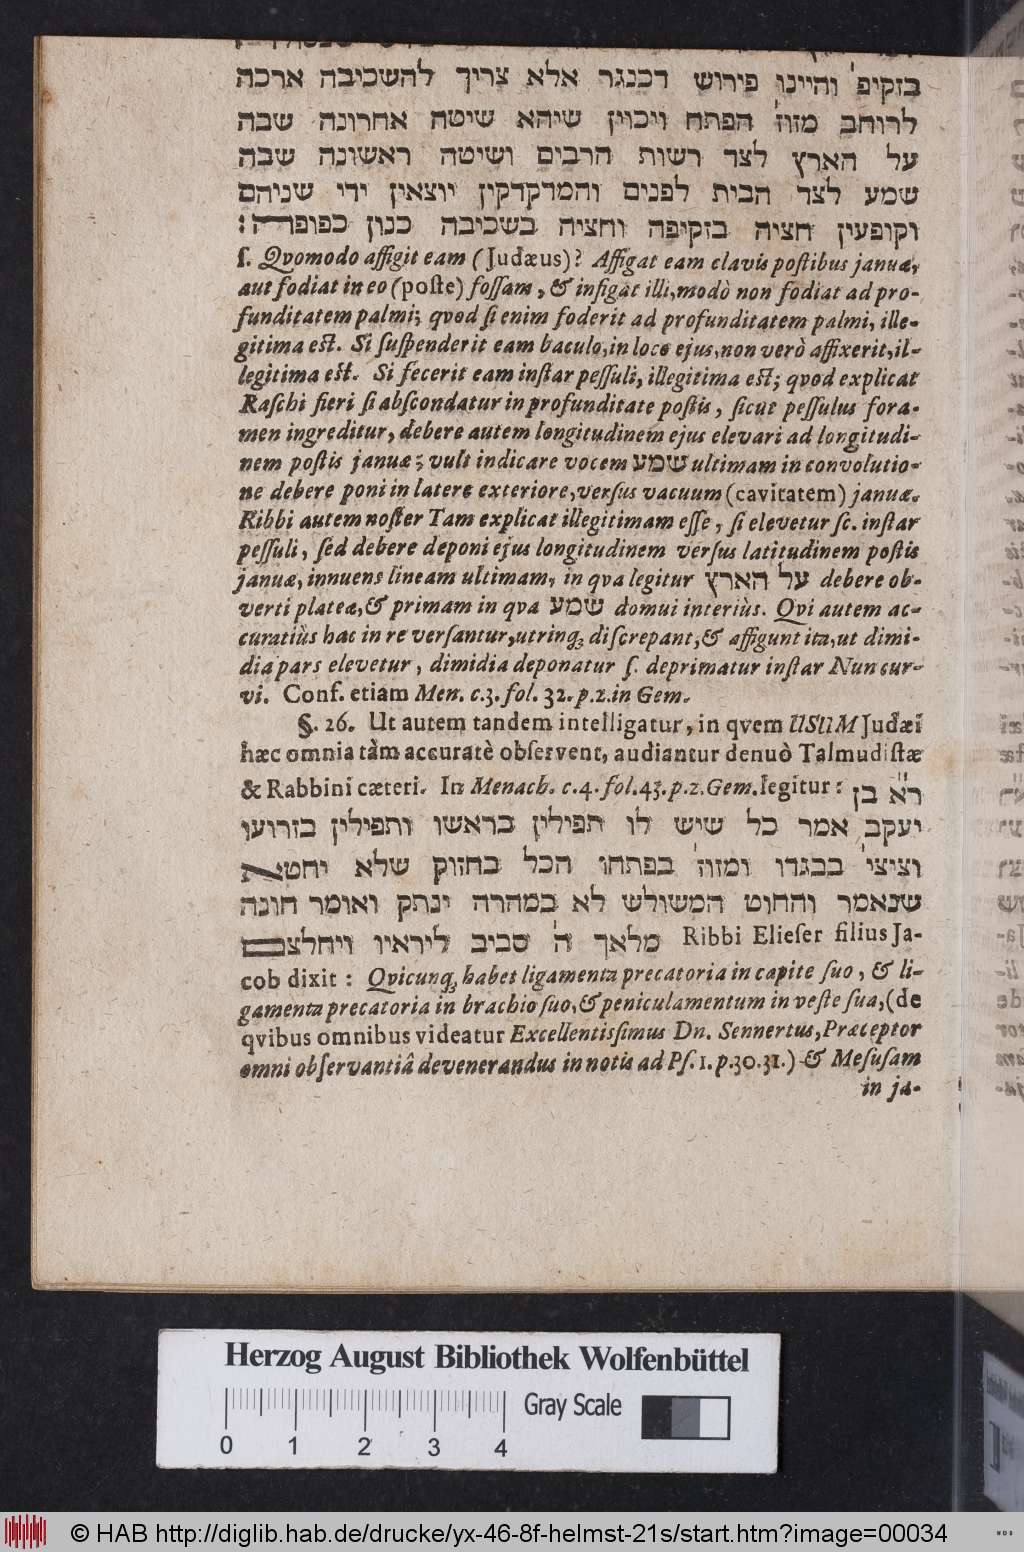 בזקיפ' והיינו פירוש דכנגר אלא צריך להשכיבה ארכה
לרוחב מזוז' הפתח ויכוין שיהא שיטה אחרונה שבה
על הארץ לצד רשות הרבים ושיטה ראשונה שבה
שמע לצד הבית לפנים והמדקדקין יוצאין ידי שניהם
וקופעין חציה בזקיפה וחציה בשכיבה כנון כפופה:
ſ. Qvomodo affigit eam (Judæus)? Affigat eam clavis poſtibus januæ,
aut fodiat in eo (poſte) foſſam, & infigat illi, modò non fodiat ad pro-
funditatem palmi; qvod ſi enim foderit ad profunditatem palmi, ille-
gitima eſt. Si ſuſpenderit eam baculo, in loco ejus, non verò affixerit, il-
legitima eſt. Si fecerit eam inſtar peſſuli, illegitima eſt; qvod explicat
Raſchi fieri ſi abſcondatur in profunditate poſtis, ſicut peſſulus fora-
men ingreditur, debere autem longitudinem ejus elevari ad longitudi-
nem poſtis januæ; vult indicare vocem שמע ultimam in convolutio-
ne debere poni in latere exteriore, verſus vacuum (cavitatem) januæ.
Ribbi autem noſter Tam explicat illegitimam eſſe, ſi elevetur ſc. inſtar
peſſuli, ſed debere deponi ejus longitudinem verſus latitudinem poſtis
januæ, innuens lineam ultimam, in qva legitur על הארץ debere ob-
verti plateæ, & primam in qva שמע domui interiùs. Qvi autem ac-
curatiùs hac in re verſantur, utrinq; diſcrepant, & affigunt ita, ut dimi-
dia pars elevetur, dimidia deponatur ſ. deprimatur inſtar Nun cur-
vi. Conf. etiam Men. c.3. fol. 32. p.2. in Gem.
§. 26. Ut autem tandem intelligatur, in qvem USUM Judæi
hæc omnia tàm accuratè obſervent, audiantur denuò Talmudiſtæ
& Rabbini cæteri. In Menach. c.4. fol. 43. p.2. Gem. legitur: ר"א בן
יעקב אמר כל שיש לו תפילין בראשו ותפילין בזרועו
וציצי' בבגדו ומזוז' בפתחו הכל בחזוק שלא יחטא
שנאמר והחוט המשולש לא במהרה ינתק ואומר חונה
מלאך ה' סביב ליראיו ויחלצם Ribbi Elieſer filius Ja-
cob dixit: Qvicunq; habet ligamenta precatoria in capite ſuo, & li-
gamenta precatoria in brachio ſuo, & peniculamentum in veſte ſua, (de
qvibus omnibus videatur Excellentiſſimus Dn. Sennertus, Præceptor
omni obſervantiâ devenerandus in notis ad Pſ. 1. p. 30. 31.) & Meſuſam
in ja-
Herzog August Bibliothek Wolfenbüttel
Gray Scale
0 1 2 3 4
© HAB http://diglib.hab.de/drucke/yx-46-8f-helmst-21s/start.htm?image=00034